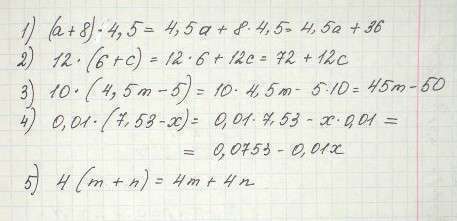 1) (a+8)·4,5 = 4,5a + 8·4,5 = 4,5a + 36
2) 12·(6+c) = 12·6 + 12c = 72 + 12c
3) 10·(4,5m-5) = 10·4,5m - 5·10 = 45m - 50
4) 0,01·(7,53-x) = 0,01·7,53 - x·0,01 =
= 0,0753 - 0,01x
5) 4(m+n) = 4m + 4n